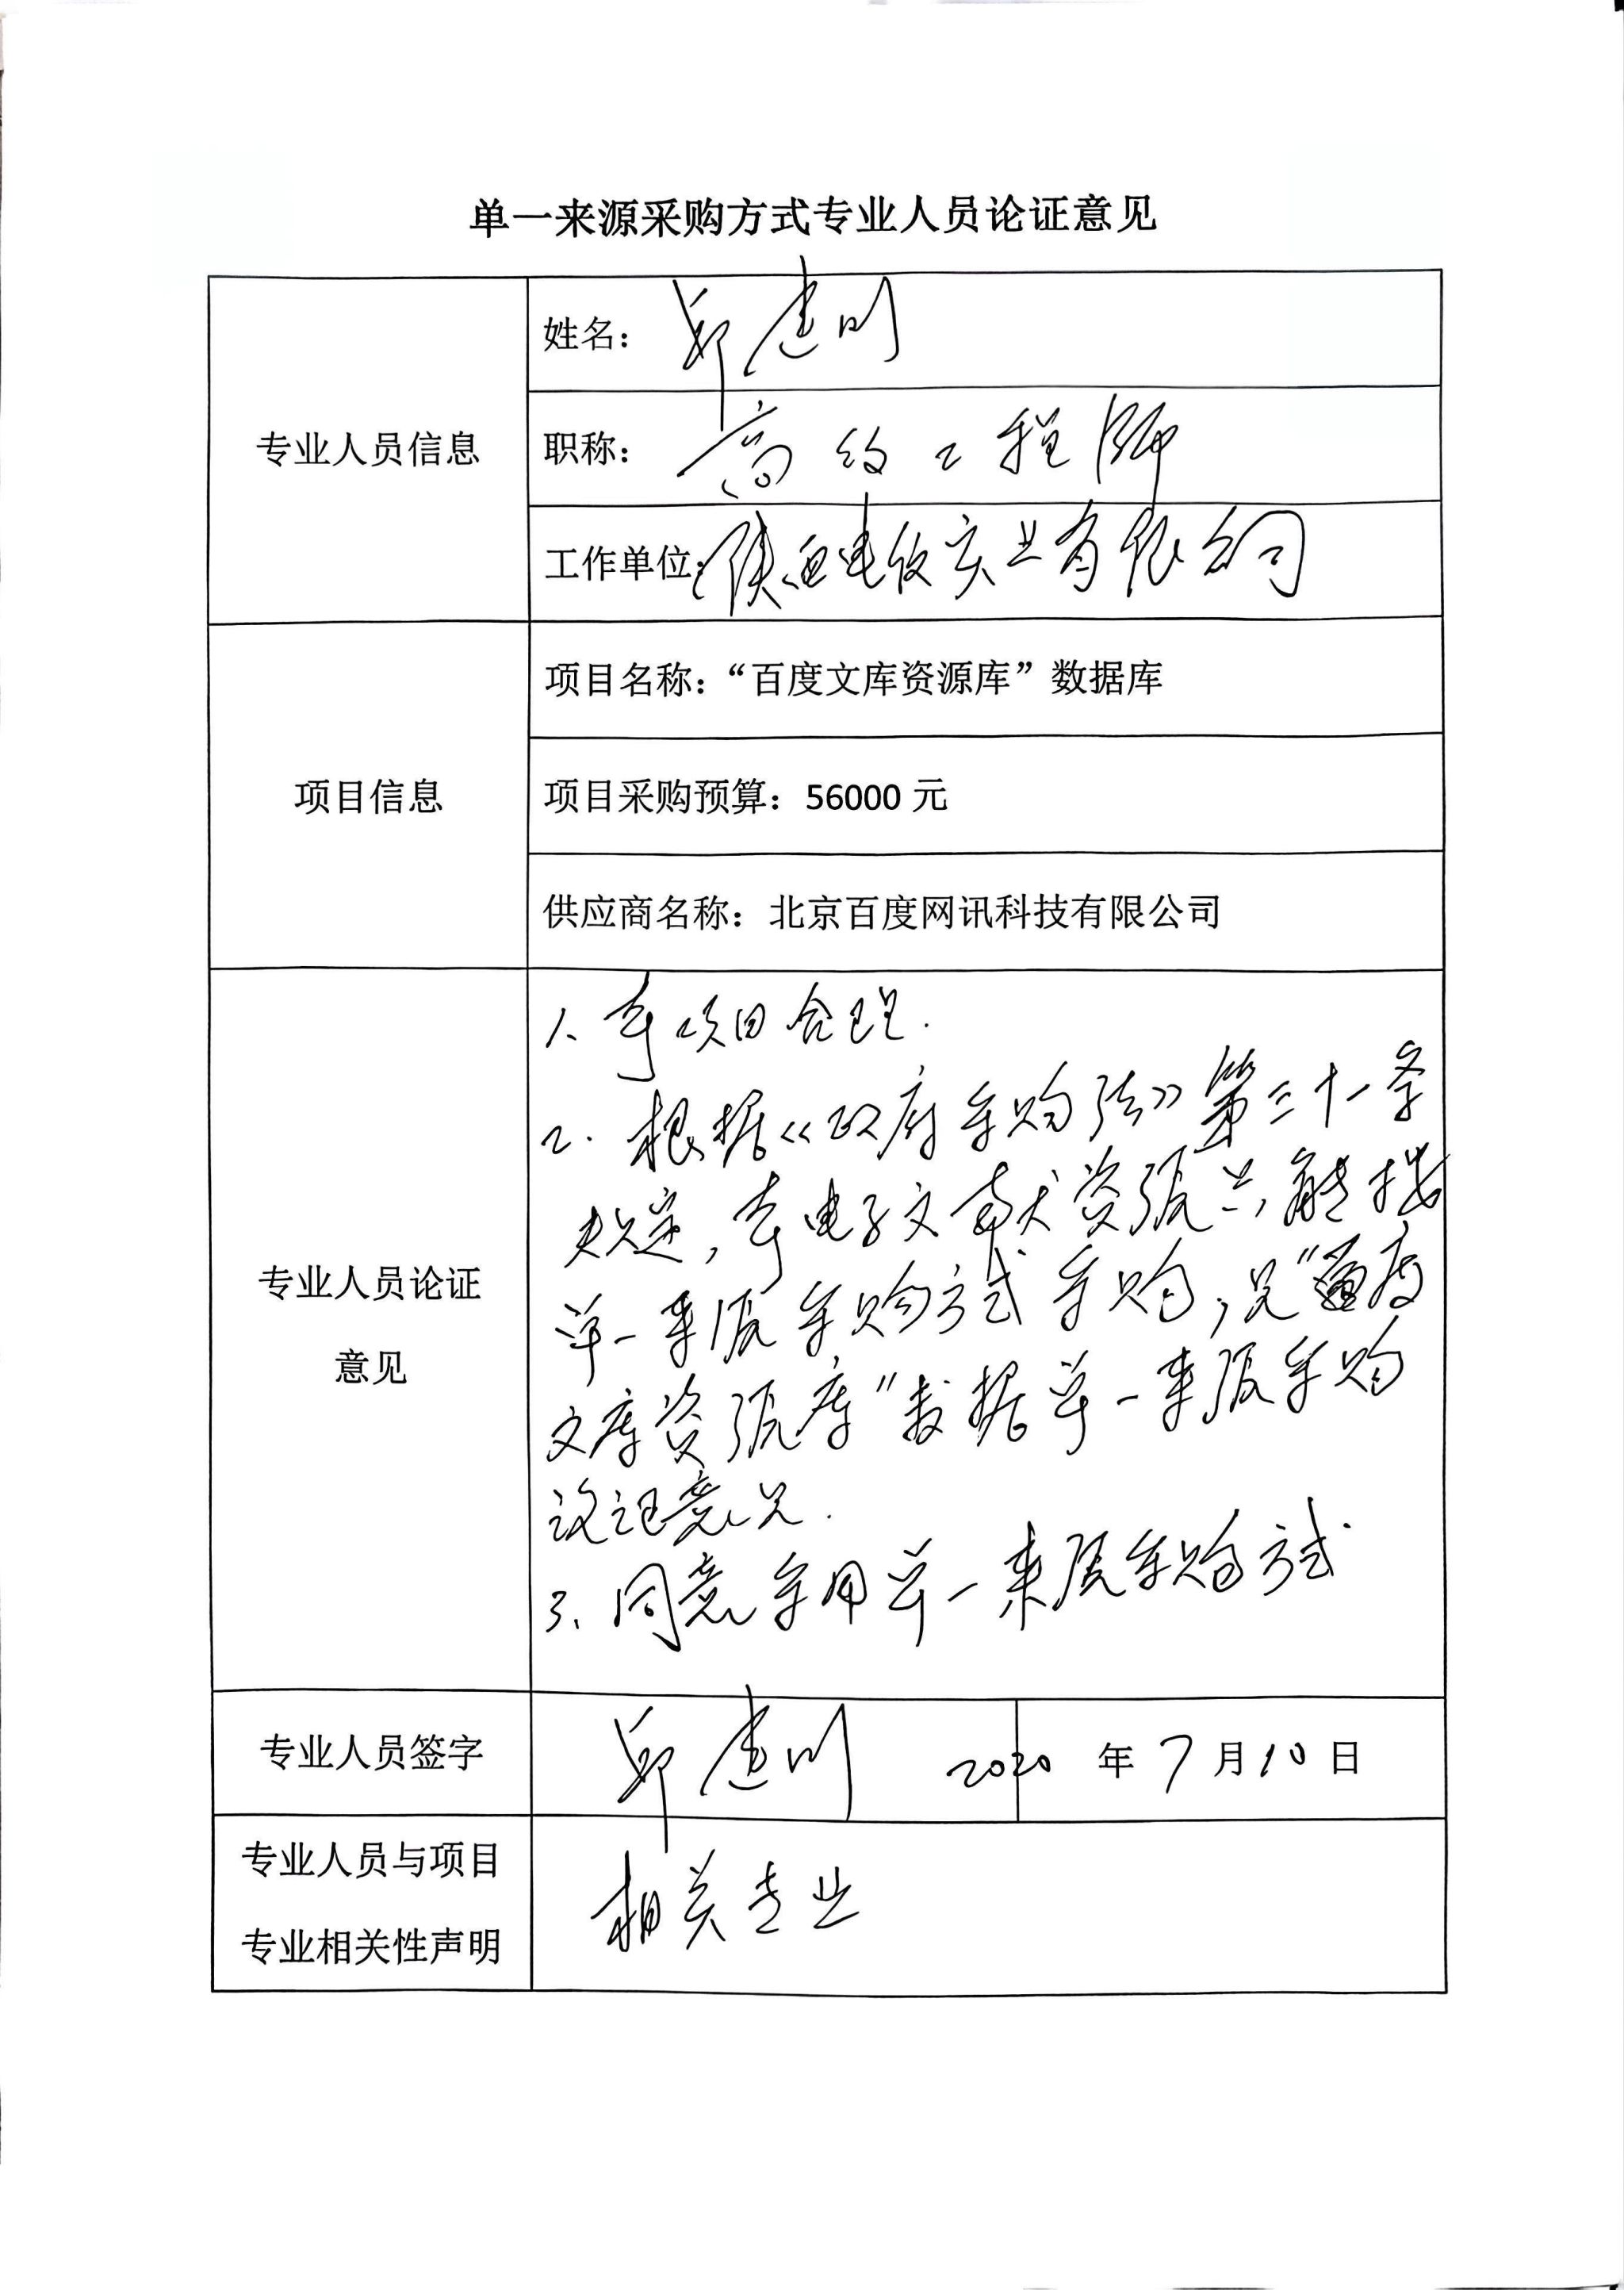 单一来源采购方式专业人员论证意见
专业人员信息
姓名：郭建川
职称：高级工程师
工作单位：陕西电信实业有限公司
项目信息
项目名称：“百度文库资源库”数据库
项目采购预算：56000 元
供应商名称：北京百度网讯科技有限公司
专业人员论证
意见
1、本项目合理.
2. 根据《政府采购法》第三十一条
规定，本电子文献资源只能按
单一来源采购方式采购，见“百度
文库资源库”数据单一来源采购
论证意见.
3、同意采用单一来源采购方式
专业人员签字
建川
2020 年 7 月 10 日
专业人员与项目
专业相关性声明
相关专业